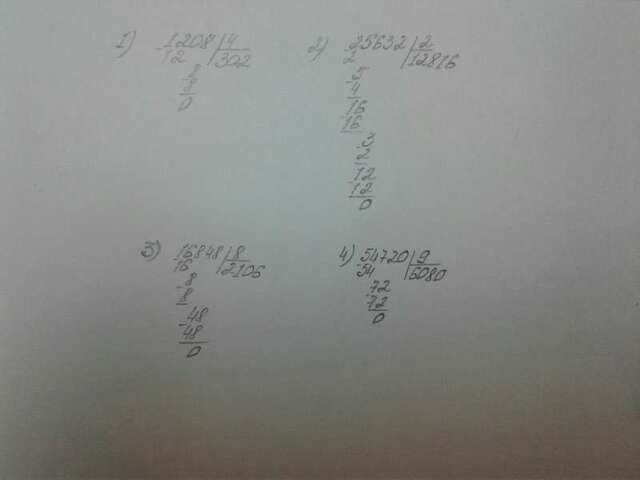 1) 1208 | 4
12 | 302
8
8
0
2) 25632 | 2
2 | 12816
5
4
16
16
3
2
12
12
0
3) 16848 | 8
16 | 2106
8
8
48
48
0
4) 54720 | 9
54 | 6080
72
72
0